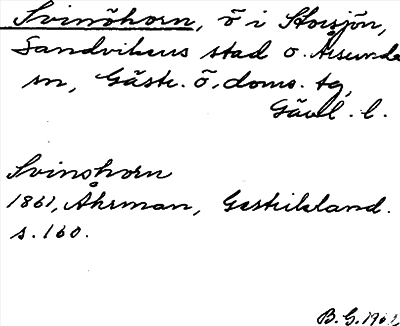 Svinöhorn, ö i Storsjön,
Sandvikens stad o. Årsunda
sn, Gästr. ö. doms. tg,
Gävl. l.
Svinohorn
1861, Åhrman, Gestrikland.
s. 160.
B. G. 1962